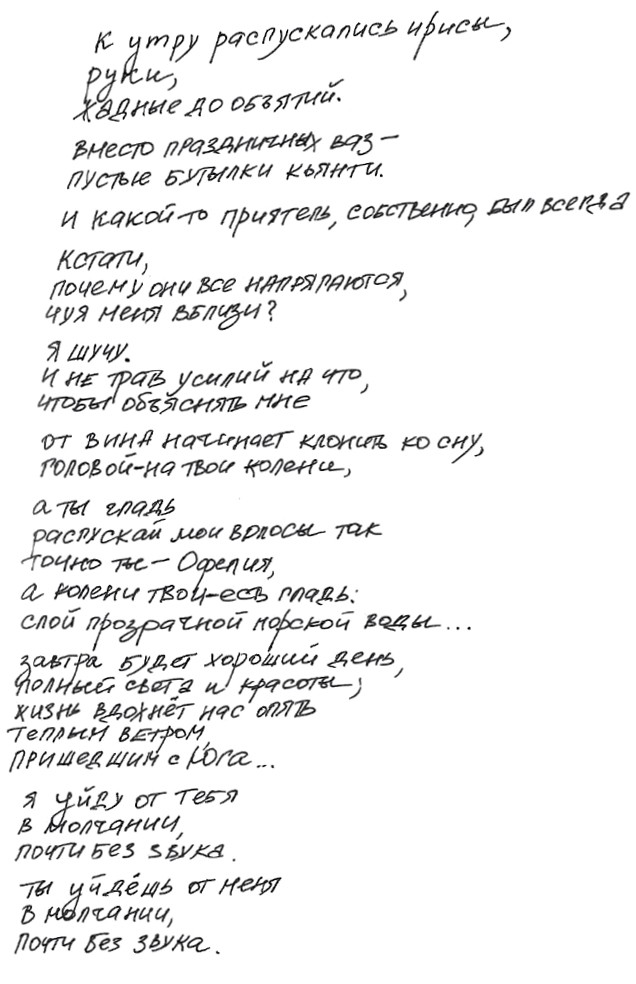 К утру распускались ирисы,
руки,
жадные до объятий.
вместо праздничных ваз –
пустые бутылки кьянти.
и какой-то приятель, собственно, был всегда
кстати,
почему они все напрягаются,
чуя меня вблизи?
я шучу.
и не трать усилий на что,
чтобы объяснять мне
от вина начинает клонить ко сну,
головой-на твои колени,
а ты гладь
распускай мои волосы так
точно ты – Офелия,
а колени твои-есть гладь:
слой прозрачной морской воды...
завтра будет хороший день,
полный света и красоты;
жизнь вдохнёт нас опять
теплым ветром,
пришедшим с юга...
я уйду от тебя
в молчании,
почти без звука.
ты уйдёшь от меня
в молчании,
почти без звука.